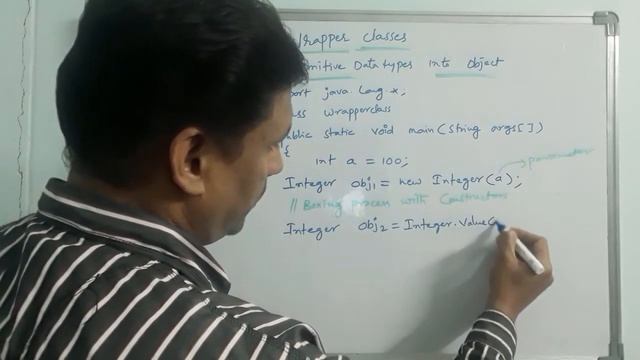 Wrapper Classes
mitive Datatypes Into Object
port java.lang.*;
ss Wrapperclass
public static void main(String args[])
{
int a = 100;
Integer obj1 = new Integer(a); parameter
// Boxing process with Constructors
Integer obj2 = Integer.Value